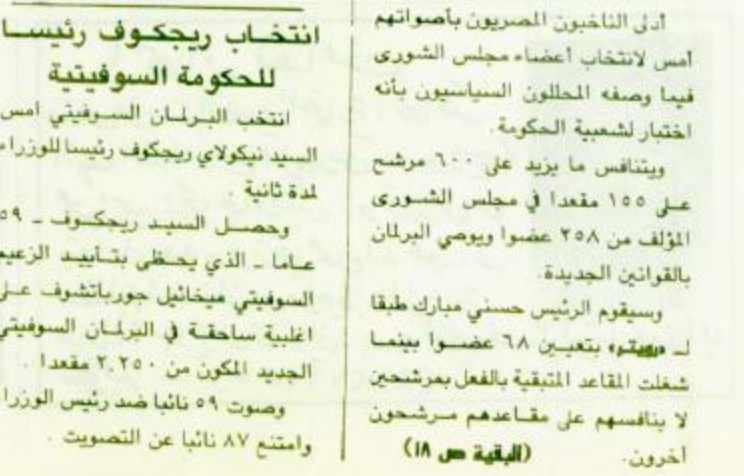 أدلى الناخبون المصريون بأصواتهم
أمس لانتخاب أعضاء مجلس الشورى
فيما وصفه المحللون السياسيون بأنه
اختبار لشعبية الحكومة.
ويتنافس ما يزيد على ٦٠٠ مرشح
على ١٥٥ مقعدا في مجلس الشورى
المؤلف من ٢٥٨ عضوا ويوصي البرلمان
بالقوانين الجديدة.
وسيقوم الرئيس حسني مبارك طبقا
لـ «رويتر» بتعيين ٦٨ عضوا بينما
شغلت المقاعد المتبقية بالفعل بمرشحين
لا ينافسهم على مقاعدهم مرشحون
آخرون. (البقية ص ١٨)
انتخاب ريجكوف رئيسا
للحكومة السوفيتية
انتخب البرلمان السوفيتي أمس
السيد نيكولاي ريجكوف رئيسا للوزراء
لمدة ثانية .
وحصل السيد ريجكوف ـ ٥٩
عاما ـ الذي يحظى بتأييد الزعيم
السوفيتي ميخائيل جورباتشوف على
اغلبية ساحقة في البرلمان السوفيتي
الجديد المكون من ٢,٢٥٠ مقعدا .
وصوت ٥٩ نائبا ضد رئيس الوزراء
وامتنع ٨٧ نائبا عن التصويت .